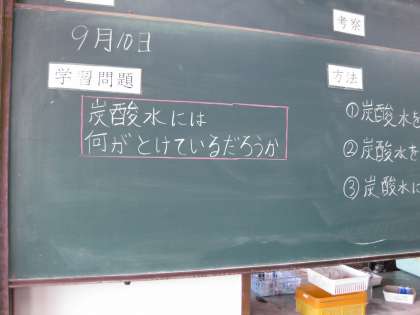 9月10日
学習問題
炭酸水には
何がとけているだろうか
考察
方法
①炭酸水を
②炭酸水を
③炭酸水に